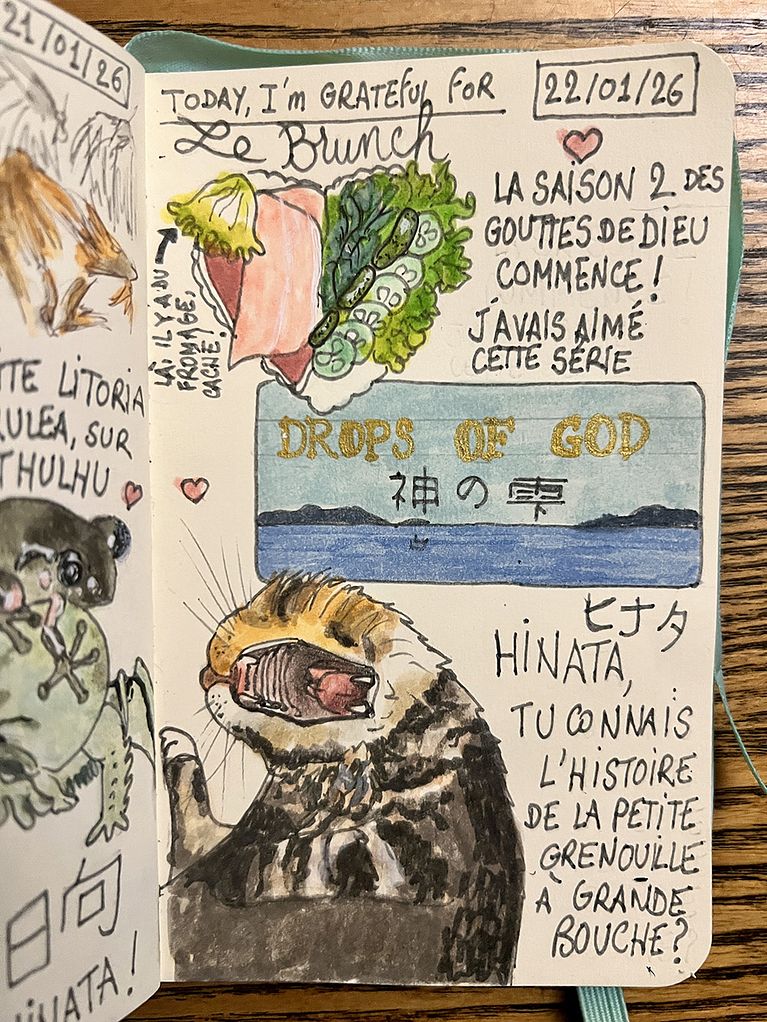 21/01/26
LITORIA
SUR
THULHU
日向
HINATA!
TODAY, I'm GRATEFUL FOR
22/01/26
Le Brunch
LÀ: IL Y A DU
FROMAGE,
CACHÉ!
LA SAISON 2 DES
GOUTTES DE DIEU
COMMENCE!
J'AVAIS AIMÉ
CETTE SÉRIE
DROPS OF GOD
神の雫
ヒナタ
HINATA,
TU CONNAIS
L'HISTOIRE
DE LA PETITE
GRENOUILLE
À GRANDE
BOUCHE?